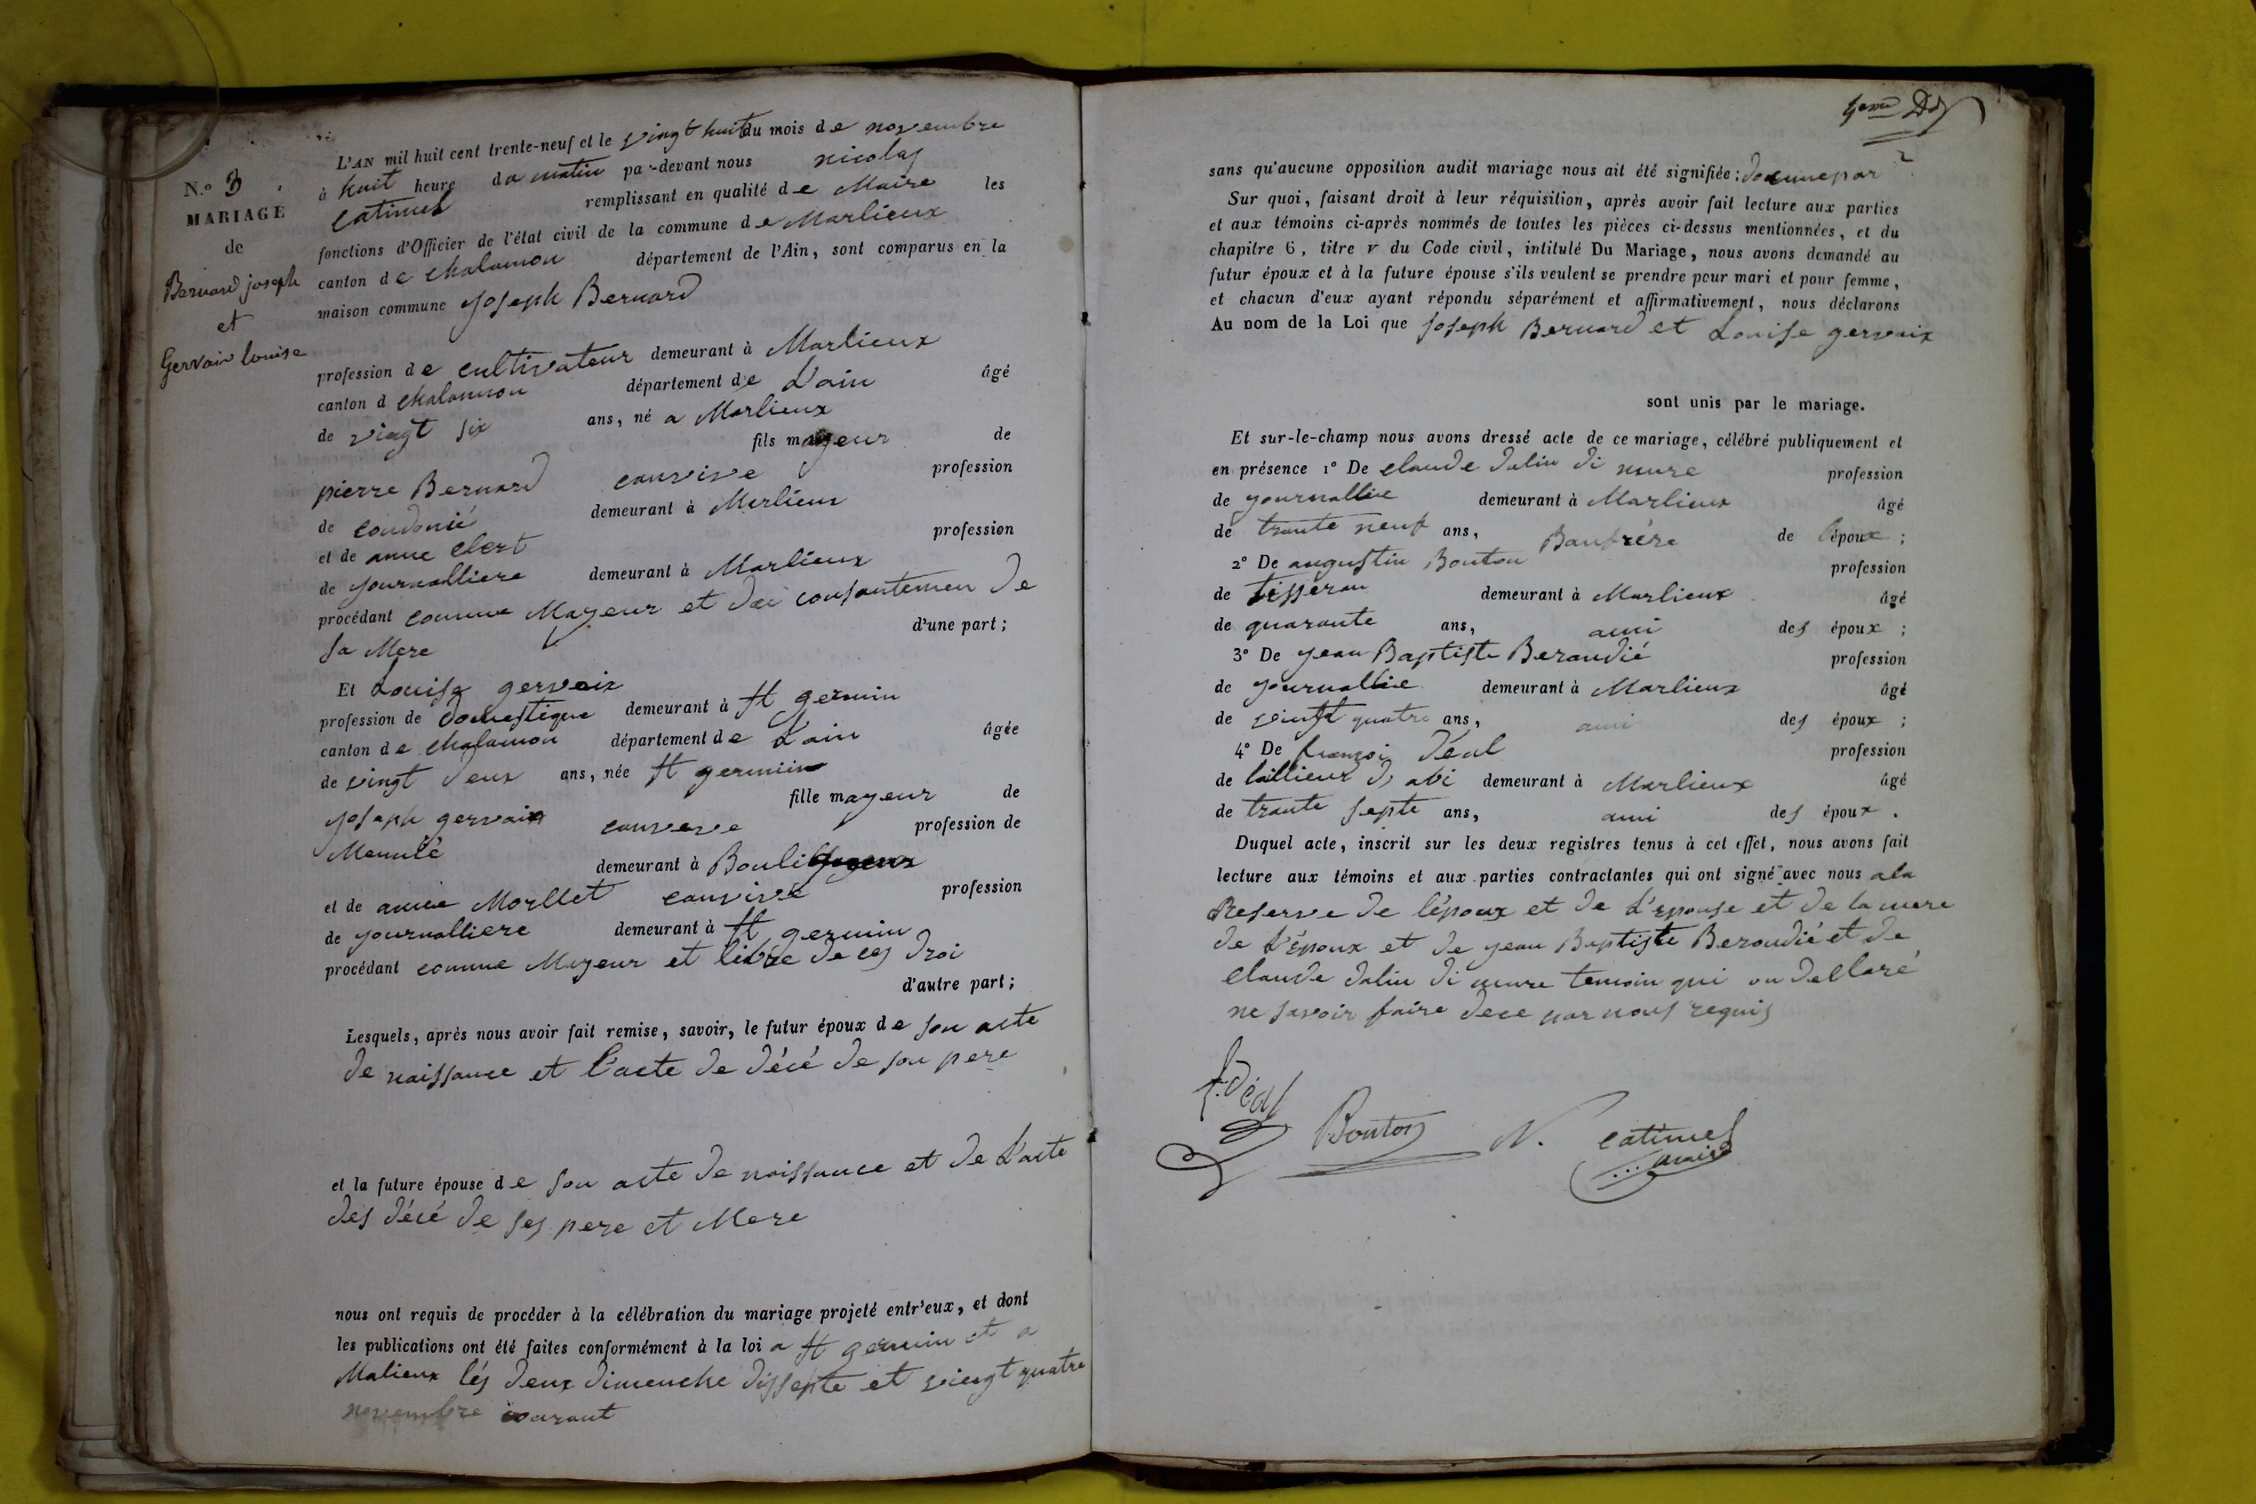 N.º 3
MARIAGE
de
Bernard joseph
et
Gervais louise
L'AN mil huit cent trente-neuf et le vingt huit du mois de novembre
à huit heure du matin par-devant nous nicolas
Catimel remplissant en qualité de Maire les
fonctions d'Officier de l'état civil de la commune de Marlieux
canton de chalamon département de l'Ain, sont comparus en la
maison commune joseph Bernard
profession de cultivateur demeurant à Marlieux
canton d chalamon département de L'ain âgé
de viegt six ans, né a Marlieux
fils mayeur de
pierre Bernard canvive profession
de coudonié demeurant à Marlieux
et de anne clert profession
de journalliere demeurant à Marlieux
procédant comme Mayeur et du consantemen de
sa Mere d'une part;
Et Louise gervaix
profession de domestique demeurant à St germin
canton de chalamon département de L'ain âgée
de vingt deux ans, née St germiin
fille mayeur de
joseph gervaix canveve profession de
Meunié demeurant à Bouli
et de Morllet canvive profession
de journalliere demeurant à St germin
procédant comme Mayeur et libre de ces droi
d'autre part;
Lesquels, après nous avoir fait remise, savoir, le futur époux de son acte
de naissance et l'acte de décé de son pere
et la future épouse de son acte de naissance et de L'acte
des décé de ses pere et Mere
nous ont requis de procéder à la célébration du mariage projeté entr'eux, et dont
les publications ont été faites conformément à la loi a St germin et a
Malieux lés deux dimenche dissepte et viengt quatre
novembre courant
sans qu'aucune opposition audit mariage nous ait été signifiée:
Sur quoi, faisant droit à leur réquisition, après avoir fait lecture aux parties
et aux témoins ci-après nommés de toutes les pièces ci-dessus mentionnées, et du
chapitre 6, titre v du Code civil, intitulé Du Mariage, nous avons demandé au
futur époux et à la future épouse s'ils veulent se prendre pour mari et pour femme,
et chacun d'eux ayant répondu séparément et affirmativement, nous déclarons
Au nom de la Loi que joseph Bernard et Louise gervaix
sont unis par le mariage.
Et sur-le-champ nous avons dressé acte de ce mariage, célébré publiquement et
en présence 1º De claude dalin di mure profession
de journallié demeurant à Marlieux âgé
de trante neuf ans, Baufrére de l'époux;
2º De augustin Bouton profession
de tisseran demeurant à Marlieux âgé
de quarante ans, ami des époux;
3º De jean Baptiste Beraudié profession
de journallié demeurant à Marlieux âgé
de vintt quatre ans, ami des époux;
4º De françoi Déal profession
de taillieur d abi demeurant à Marlieux âgé
de trante septe ans, ami des époux.
Duquel acte, inscrit sur les deux registres tenus à cet effet, nous avons fait
lecture aux témoins et aux parties contractantes qui ont signé avec nous ala
Reserve de l'époux et de L'epouse et de la mere
de L'époux et de jean Baptiste Beraudié et de
claude dalin di mure temoin qui on dellaré
ne savoir faire dece par nous requis
f. déal
Bouton
N. catimel
maire